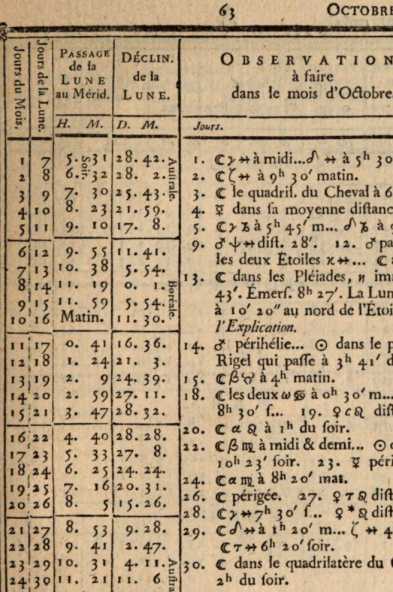 63 OCTOBRE
Jours du Mois.
Jours de la Lune.
PASSAGE
de la
LUNE
au Mérid.
H. M.
DÉCLIN.
de la
LUNE.
D. M.
OBSERVATION
à faire
dans le mois d'Octobre
Jours.
1 7 5. 31 28. 42.
2 8 6. 32 28. 2.
3 9 7. 30 25. 43.
4 10 8. 23 21. 59.
5 11 9. 10 17. 8.
6 12 9. 55 11. 41.
7 13 10. 38 5. 54.
8 14 11. 19 0. 1.
9 15 11. 59 5. 54.
10 16 Matin. 11. 30.
11 17 0. 41 16. 36.
12 18 1. 24 21. 3.
13 19 2. 9 24. 39.
14 20 2. 59 27. 11.
15 21 3. 47 28. 32.
16 22 4. 40 28. 28.
17 23 5. 33 27. 8.
18 24 6. 25 24. 24.
19 25 7. 16 20. 31.
20 26 8. 5 15. 26.
21 27 8. 53 9. 28.
22 28 9. 41 2. 47.
23 29 10. 31 4. 11.
24 30 11. 21 11. 6
Soir.
Australe.
Boréale.
Austra
1. ☾ γ ♐ à midi... ☍ ♐ à 5h 30
2. ☾ ζ ♐ à 9h 30' matin.
3. ☾ le quadril. du Cheval à 6
4. ☿ dans sa moyenne distanc
5. ☾ γ ♑ à 5h 45' m... ☍ ♑ à
9. ♂ ψ ♐ dist. 28'. 12. ♂ pa
les deux Etoiles κ ♐... ☾
13. ☾ dans les Pléiades, η im
43'. Émers. 8h 27'. La Lun
à 10' 20" au nord de l'Etoi
l'Explication.
14. ♂ périhélie... ☉ dans le p
Rigel qui passe à 3h 41' d
15. ☾ β ♉ à 4h matin.
18. ☾ les deux ω ♋ à 0h 30' m...
8h 30' s... 19. ♀ c ♌ dist
20. ☾ α ♌ à 1h du soir.
22. ☾ β ♍ à midi & demi... ☉
10h 23' soir. 23. ☿ péri
24. ☾ α ♍ à 8h 20' mat.
26. ☾ périgée. 27. ♀ τ ♌ dist
28. ☾ γ ♐ 7h 30' s... ♀ * ♌ dist
29. ☾ ☍ ♐ à 1h 20' m... ζ ♐ 4
☾ τ ♐ 6h 20' soir.
30. ☾ dans le quadrilatère du
2h du soir.